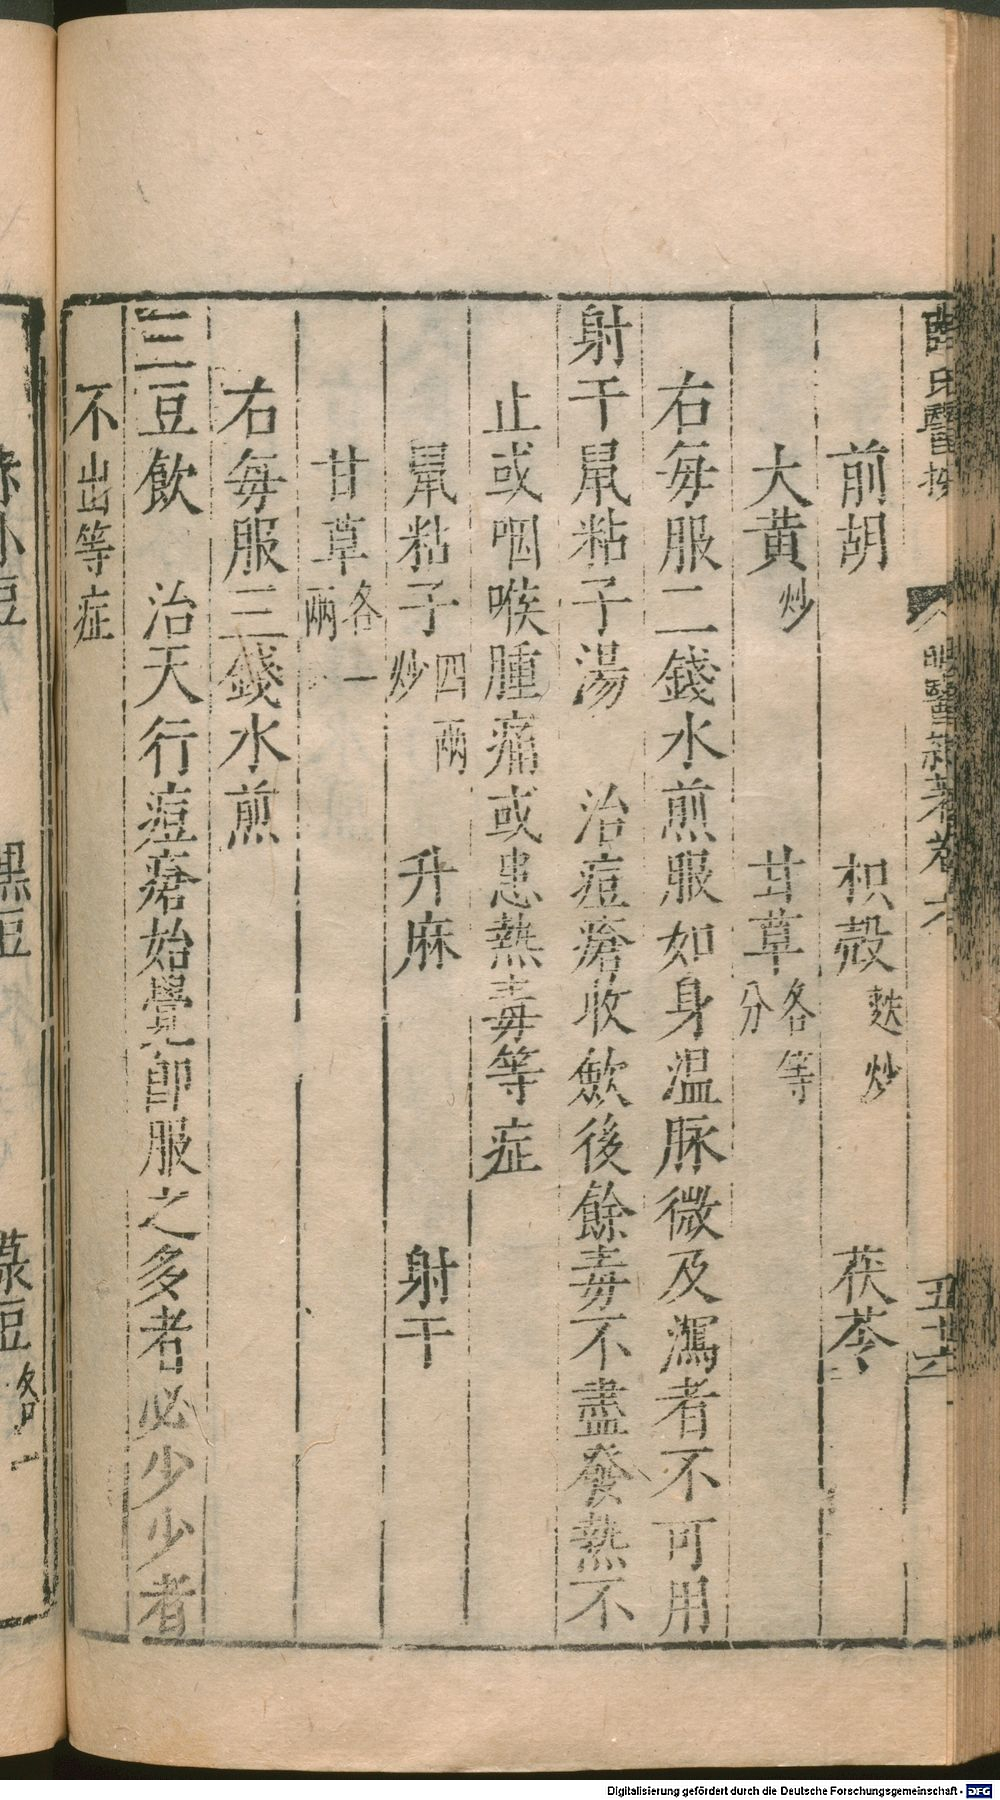 薛氏醫按 明醫雜著卷六 五十六
前胡 枳殼麩炒 茯苓
大黃炒 甘草各等分
右每服二錢水煎服如身温脉微及瀉者不可用
射干鼠粘子湯 治痘瘡收斂後餘毒不盡發熱不
止或咽喉腫痛或患熱毒等症
鼠粘子四兩炒 升麻 射干
甘草各一兩
右每服三錢水煎
三豆飲 治天行痘瘡始覺卽服之多者必少少者
不出等症
赤小豆 黑豆 菉豆各一
Digitalisierung gefördert durch die Deutsche Forschungsgemeinschaft - DFG